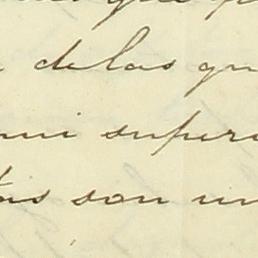 que
delas qu
mi superi
tas son un